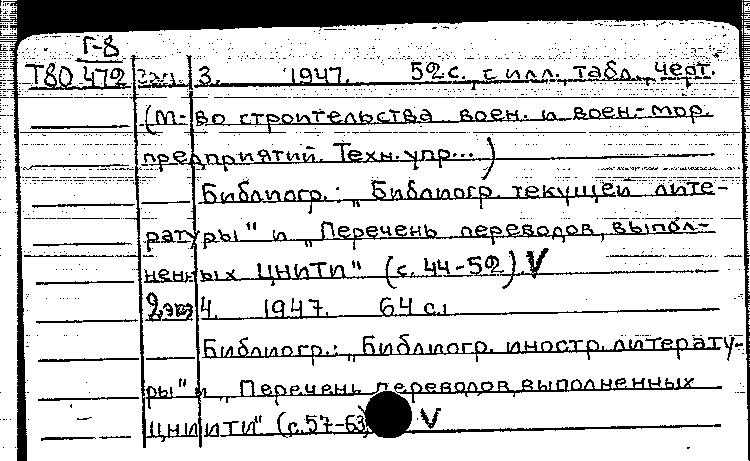 Г-8
Т80 472 2экз. 3. 1947. 52 с., с илл., табл., черт.
(М-во строительства воен. и воен.-мор.
предприятий. Техн. упр...)
Библиогр.: „Библиогр. текущей лите-
ратуры" и „Перечень переводов, выпол-
ненных ЦНИТИ" (с. 44-52) V
2экз 4. 1947. 64 с.
Библиогр.: „Библиогр. иностр. литерату-
ры" и „Перечень переводов, выполненных
ЦНИИТИ" (с. 57-63) V